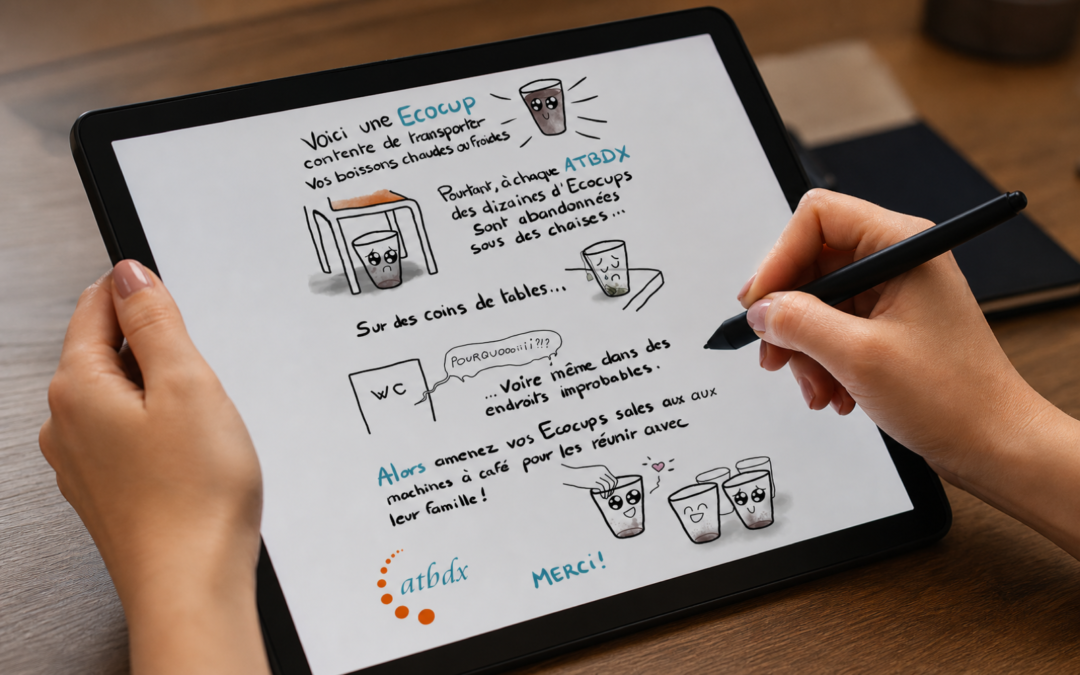 Voici une Ecocup
contente de transporter
vos boissons chaudes ou froides
Pourtant, à chaque ATBDX
des dizaines d'Ecocups
Sont abandonnées
sous des chaises...
Sur des coins de tables...
POURQUOOOiiii?!?
WC
...Voire même dans des
endroits improbables.
Alors amenez vos Ecocups sales aux aux
machines à café pour les réunir avec
leur famille !
atbdx
MERCi!